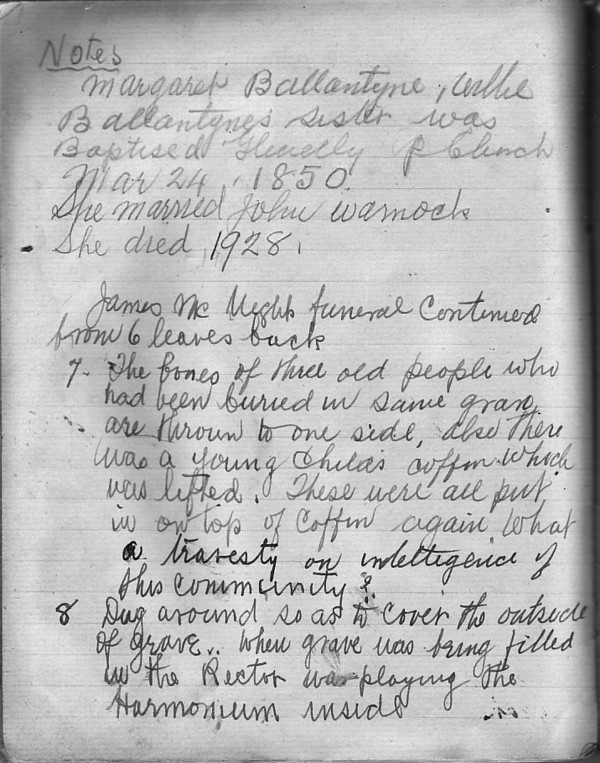 Notes
Margaret Ballantyne, Willie
Ballantyne's sister was
Baptised P Church
Mar 24, 1850.
She married John Warnock
She died, 1928.
James Mc funeral Continued
from 6 leaves back
7. The bones of three old people who
had been buried in same grave
are thrown to one side, also there
was a young childs coffin which
was lifted. These were all put
in on top of coffin again what
a travesty on intelligence of
this community?
8 Dug around so as to cover the outside
of grave.. when grave was being filled
in the Rector was playing the
Harmonium inside